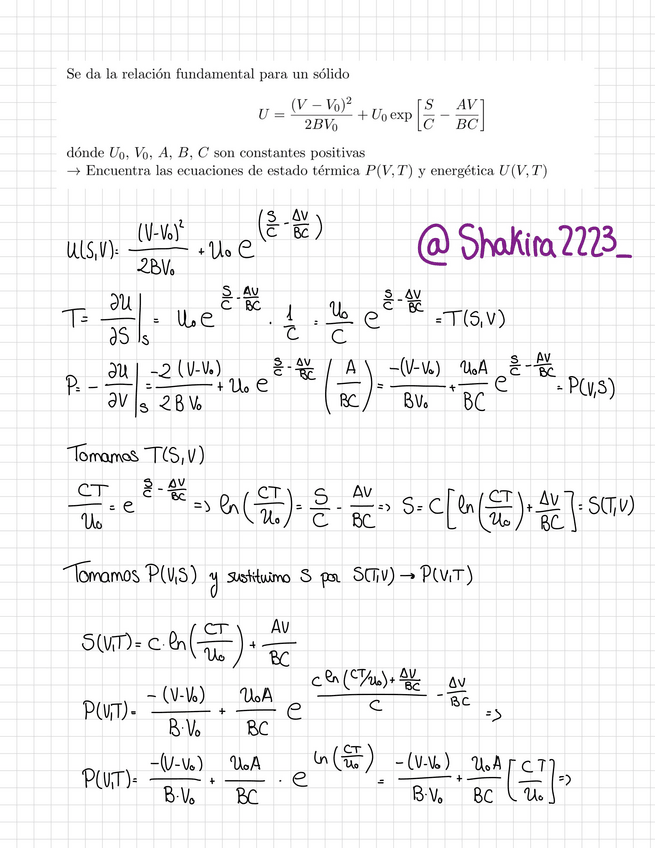 Se da la relación fundamental para un sólido
U = (V − V₀)²/(2BV₀) + U₀ exp[S/C − AV/(BC)]
dónde U₀, V₀, A, B, C son constantes positivas
→ Encuentra las ecuaciones de estado térmica P(V, T) y energética U(V, T)
U(S,V)= (V-V₀)²/(2BV₀) + U₀ e^(S/C - AV/BC)
@Shakira2223_
T= ∂U/∂S|s = U₀e^(S/C - AV/BC) · 1/C = U₀/C e^(S/C - AV/BC) = T(S,V)
P= - ∂U/∂V|s = -2(V-V₀)/(2BV₀) + U₀ e^(S/C - AV/BC) (A/BC) = -(V-V₀)/(BV₀) + U₀A/BC e^(S/C - AV/BC) = P(V,S)
Tomamos T(S,V)
CT/U₀ = e^(S/C - AV/BC) => ln(CT/U₀) = S/C - AV/BC => S= C[ln(CT/U₀) + AV/BC] = S(T,V)
Tomamos P(V,S) y sustituimo S por S(T,V) → P(V,T)
S(V,T)= C·ln(CT/U₀) + AV/BC
P(V,T)= -(V-V₀)/(B·V₀) + U₀A/BC e^((C ln(CT/U₀) + AV/BC)/C - AV/BC) =>
P(V,T)= -(V-V₀)/(B·V₀) + U₀A/BC · e^(ln(CT/U₀)) = -(V-V₀)/(B·V₀) + U₀A/BC [CT/U₀] =>